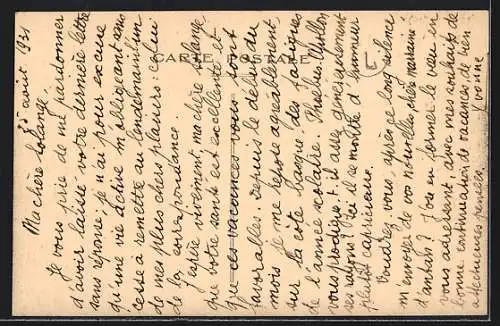 5 août 1931
Ma chère Solange,
Je vous prie de me pardonner
d'avoir laissé votre dernière lettre
sans réponse; je n'ai pour excuse
qu'une vie active m'obligeant sans
cesse à remettre au lendemain l'un
de mes plus chers plaisirs: celui
de la correspondance.
J'espère vivement, ma chère Solange
que votre santé est excellente et
que ces vacances vous sont
favorables. Depuis le début du
mois je me repose agréablement
sur la côte basque des fatigues
de l'année scolaire. Phoebus-Apollon
vous prodigue-t-il assez généreusement
ses rayons? Ici il se montre d'humeur
plutôt capricieuse.
Voudrez-vous, après ce long silence
m'envoyer de vos nouvelles, chère marraine
d'antan? J'ose en former le vœu en
vous adressant, avec mes souhaits de
bonne continuation de vacances de bien
affectueuses pensées.
Yvonne
CARTE POSTALE